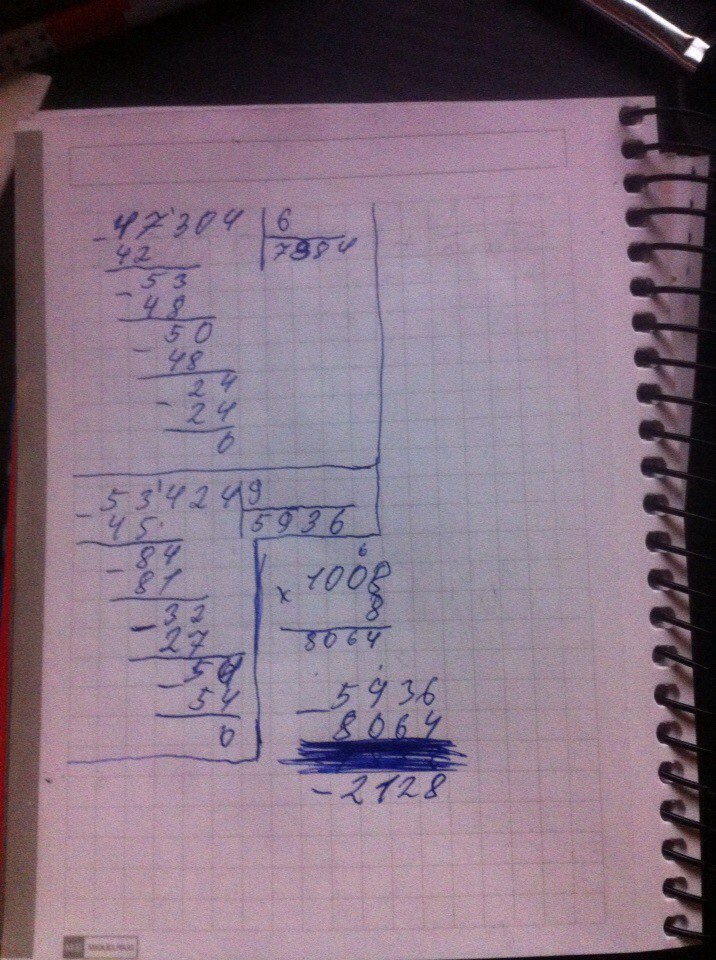 -47304 | 6
42 7884
-53
48
-50
48
-24
24
0
-53424 | 9
45 5936
-84
81
-32
27
-54
54
0
6
1008
x 8
8064
-5936
8064
-2128